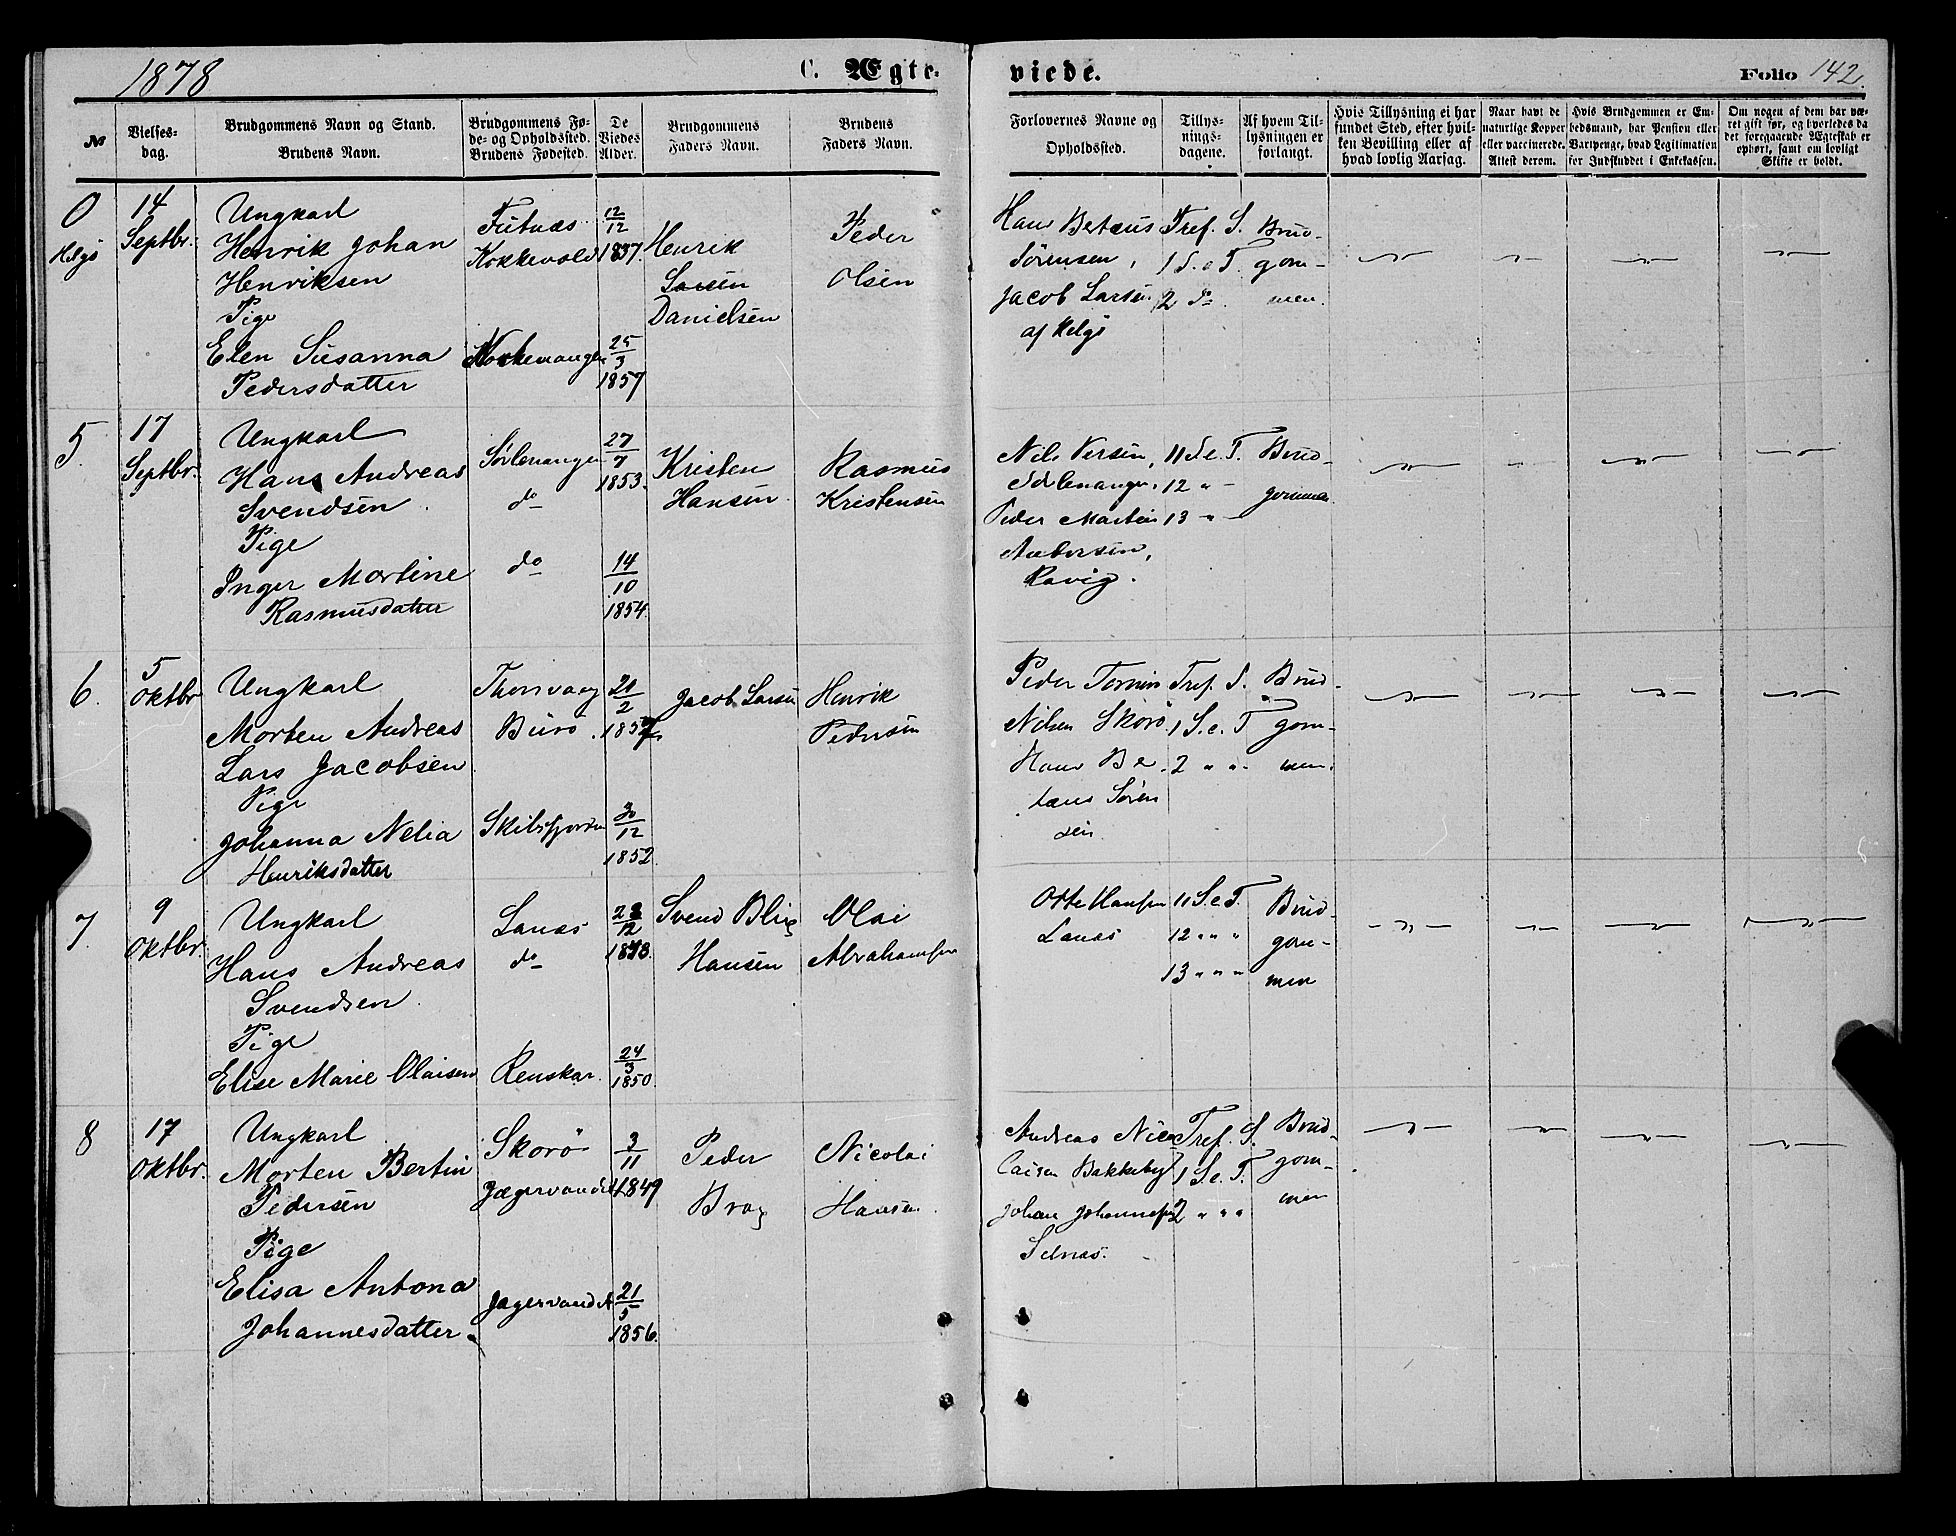 1878
C. Ægte-
viede.
Folio 142.
№
Vielses-
dag.
Brudgommens Navn og Stand.
Brudens Navn.
Brudgommens Fø-
de- og Opholdssted.
Brudens Fødested.
De
Viedes
Alder.
Brudgommens
Faders Navn.
Brudens
Faders Navn.
Forlovernes Navne og
Opholdssted.
Tillys-
nings-
dagene.
Af hvem Til-
lysningen er
forlangt.
Hvis Tillysning ei har
fundet Sted, efter hvil-
ken Bevilling eller af
hvad lovlig Aarsag.
Naar havt de
naturlige Kopper
eller vaccinerede.
Attest derom.
Hvis Brudgommen er Em-
bedsmand, har Pension eller
Vartpenge, hvad Legitimation
for Indskuddet i Enkekassen.
Om nogen af dem har væ-
ret gift før, og hvorledes da
det foregaaende Ægteskab er
ophørt, samt om lovligt
Skifte er holdt.
0
Helgø
14
Septbr.
Ungkarl
Henrik Johan
Henriksen
Pige
Elen Susanna
Pedersdatter
Futnæs
Kokkevold
12
12
1837.
25
3
1857
Henrik
Danielsen
Peder
Olsen
Hans Betæus
Sørensen,
Jacob Larsen
af Helgø
Tref. S.
1 S. e T.
2 do
Brud-
gom-
men.
5.
17
Septbr.
Ungkarl
Hans Andreas
Svendsen
Pige
Inger Martine
Rasmusdatter
Sørlenangen
do
do
27
7
1853.
14
10
1854.
Kristen
Hansen
Rasmus
Kristensen
Nils Versen,
Sørlenangen,
Peder Martin
Andersen,
Ravig.
11 S. e. T.
12 " -
13 " -
Brud-
gommen
6.
5
Oktbr
Ungkarl
Morten Andreas
Lars Jacobsen
Pige
Johanna Nelia
Henriksdatter
Thorsvaag
Burø
Skibsfjorden
21
2
30
12
1852.
Jacob Larsen
Henrik
Pedersen
Peder
Nilsen Skorø
Hans Be-
tæus Søren
sen
Tref. S.
1 S. e. T
2 " "
Brud-
gom-
men.
7.
9
Oktbr.
Ungkarl
Hans Andreas
Svendsen
Pige
Elise Marie Olaisen
Lanæs
do
Renskar.
12
24
3
1850.
Svend Blix
Hansen
Olai
Abrahamsen
Otte Hansen
Lanæs
11 S. e T.
12 " " "
13 " " "
Brud-
gom-
men
8
17
Oktbr.
Ungkarl
Morten Bertin
Pedersen
Pige
Elisa Antona
Johannesdatter
Skorø
Jægervandet
Jægervandet
3
11
1849
21
5
1856.
Peder
Nicolai
Hansen
Andreas Nico
laisen Bakkebyg
Johan Johannesen
Selnæs.
Tref. S.
1 S. e. T.
2 " " "
Brud-
gom-
men